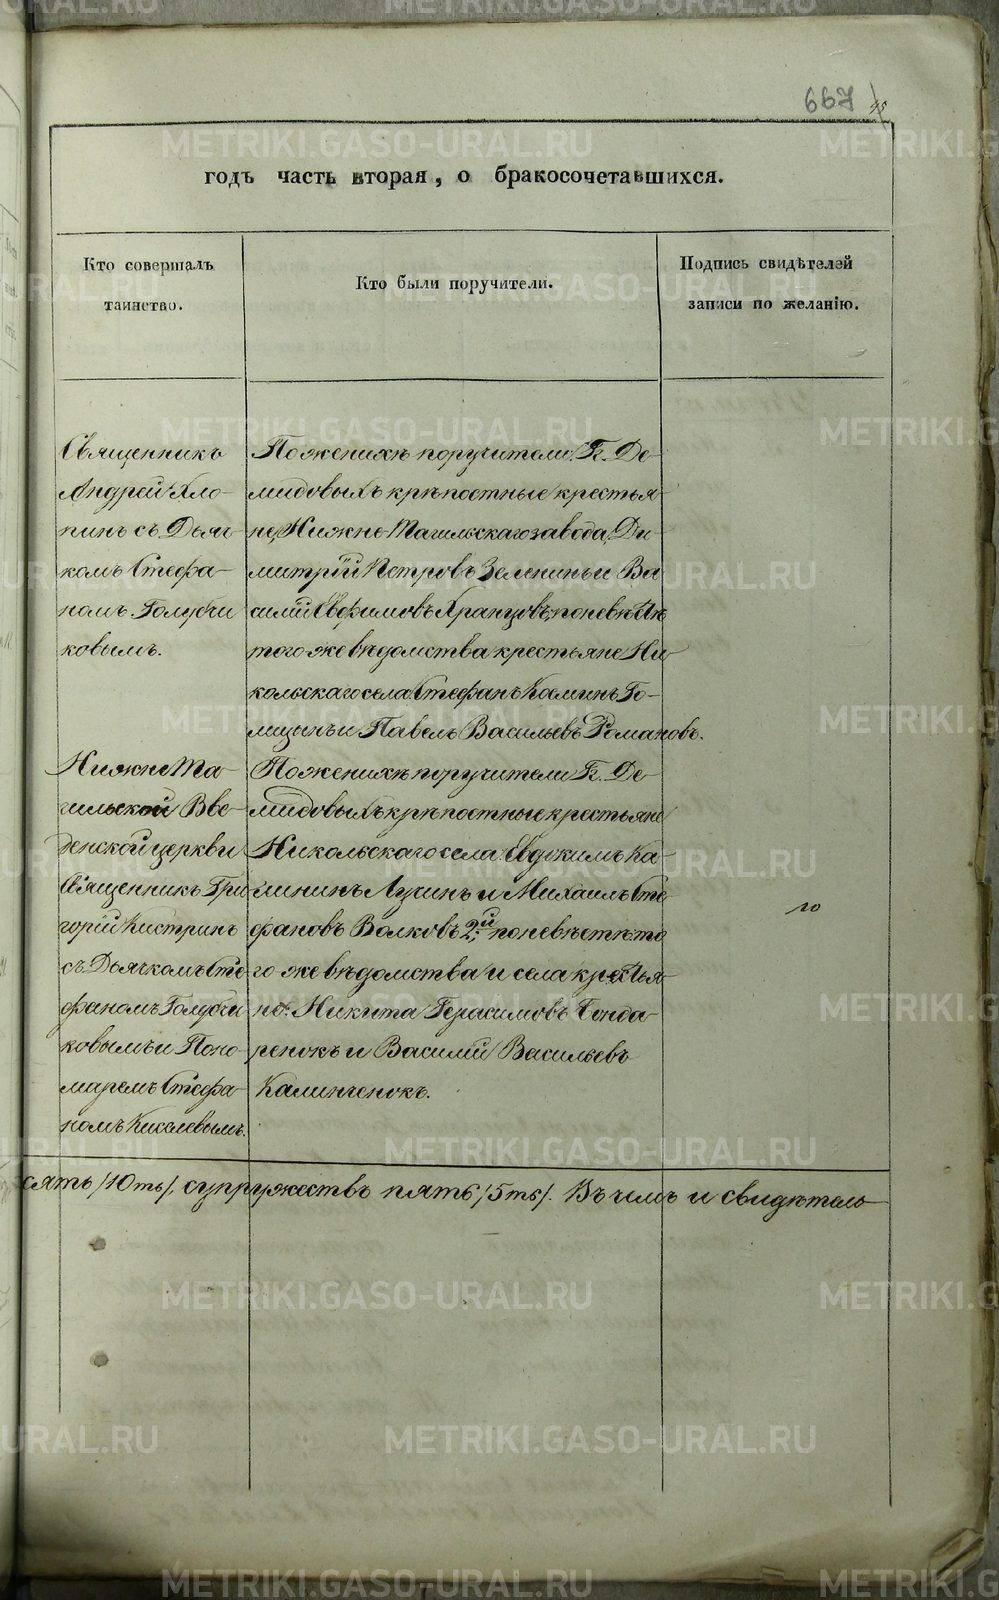 667 45
годъ часть вторая, о бракосочетавшихся.
Кто совершалъ
таинство.
Кто были поручители.
Подпись свидѣтелей
записи по желанію.
Священникъ
Андрей Хло-
пинъ съ Дьяч-
комъ Стефа-
номъ Голубчи
ковымъ.
По женихѣ поручители Г.г. Де-
мидовыхъ крѣпостные крестья-
не, Нижне-Тагильскаго завода, Ди-
митрій Петровъ Зеленинъ и Ва
силій Евфимовъ Хранцовъ, по невѣстѣ
того же вѣдомства крестьяне Ни
кольскаго села Стефанъ Калинъ Го-
лицынъ и Павелъ Васильевъ Романовъ.
Нижне Та-
гильской Вве-
денской церкви
Священникъ Гри
горій Кистринъ
съ Дьячкомъ Сте
фаномъ Голубчи
ковымъ и Поно-
маремъ Стефа-
номъ Киселевымъ.
По женихѣ поручители Г.г. Де-
мидовыхъ крѣпостные крестьяне
Никольскаго села Евдокимъ Ка-
лининъ Лузинъ и Михаилъ Сте-
фановъ Волковъ 2й; по невѣстѣ: то
го же вѣдомства и села крестья-
не: Никита Герасимовъ Бонда-
ренокъ и Василій Васильевъ
Калинченокъ.
сять /10ть/, супружествъ пять /5ть/. Въ чемъ и свидѣтель-
METRIKI.GASO-URAL.RU